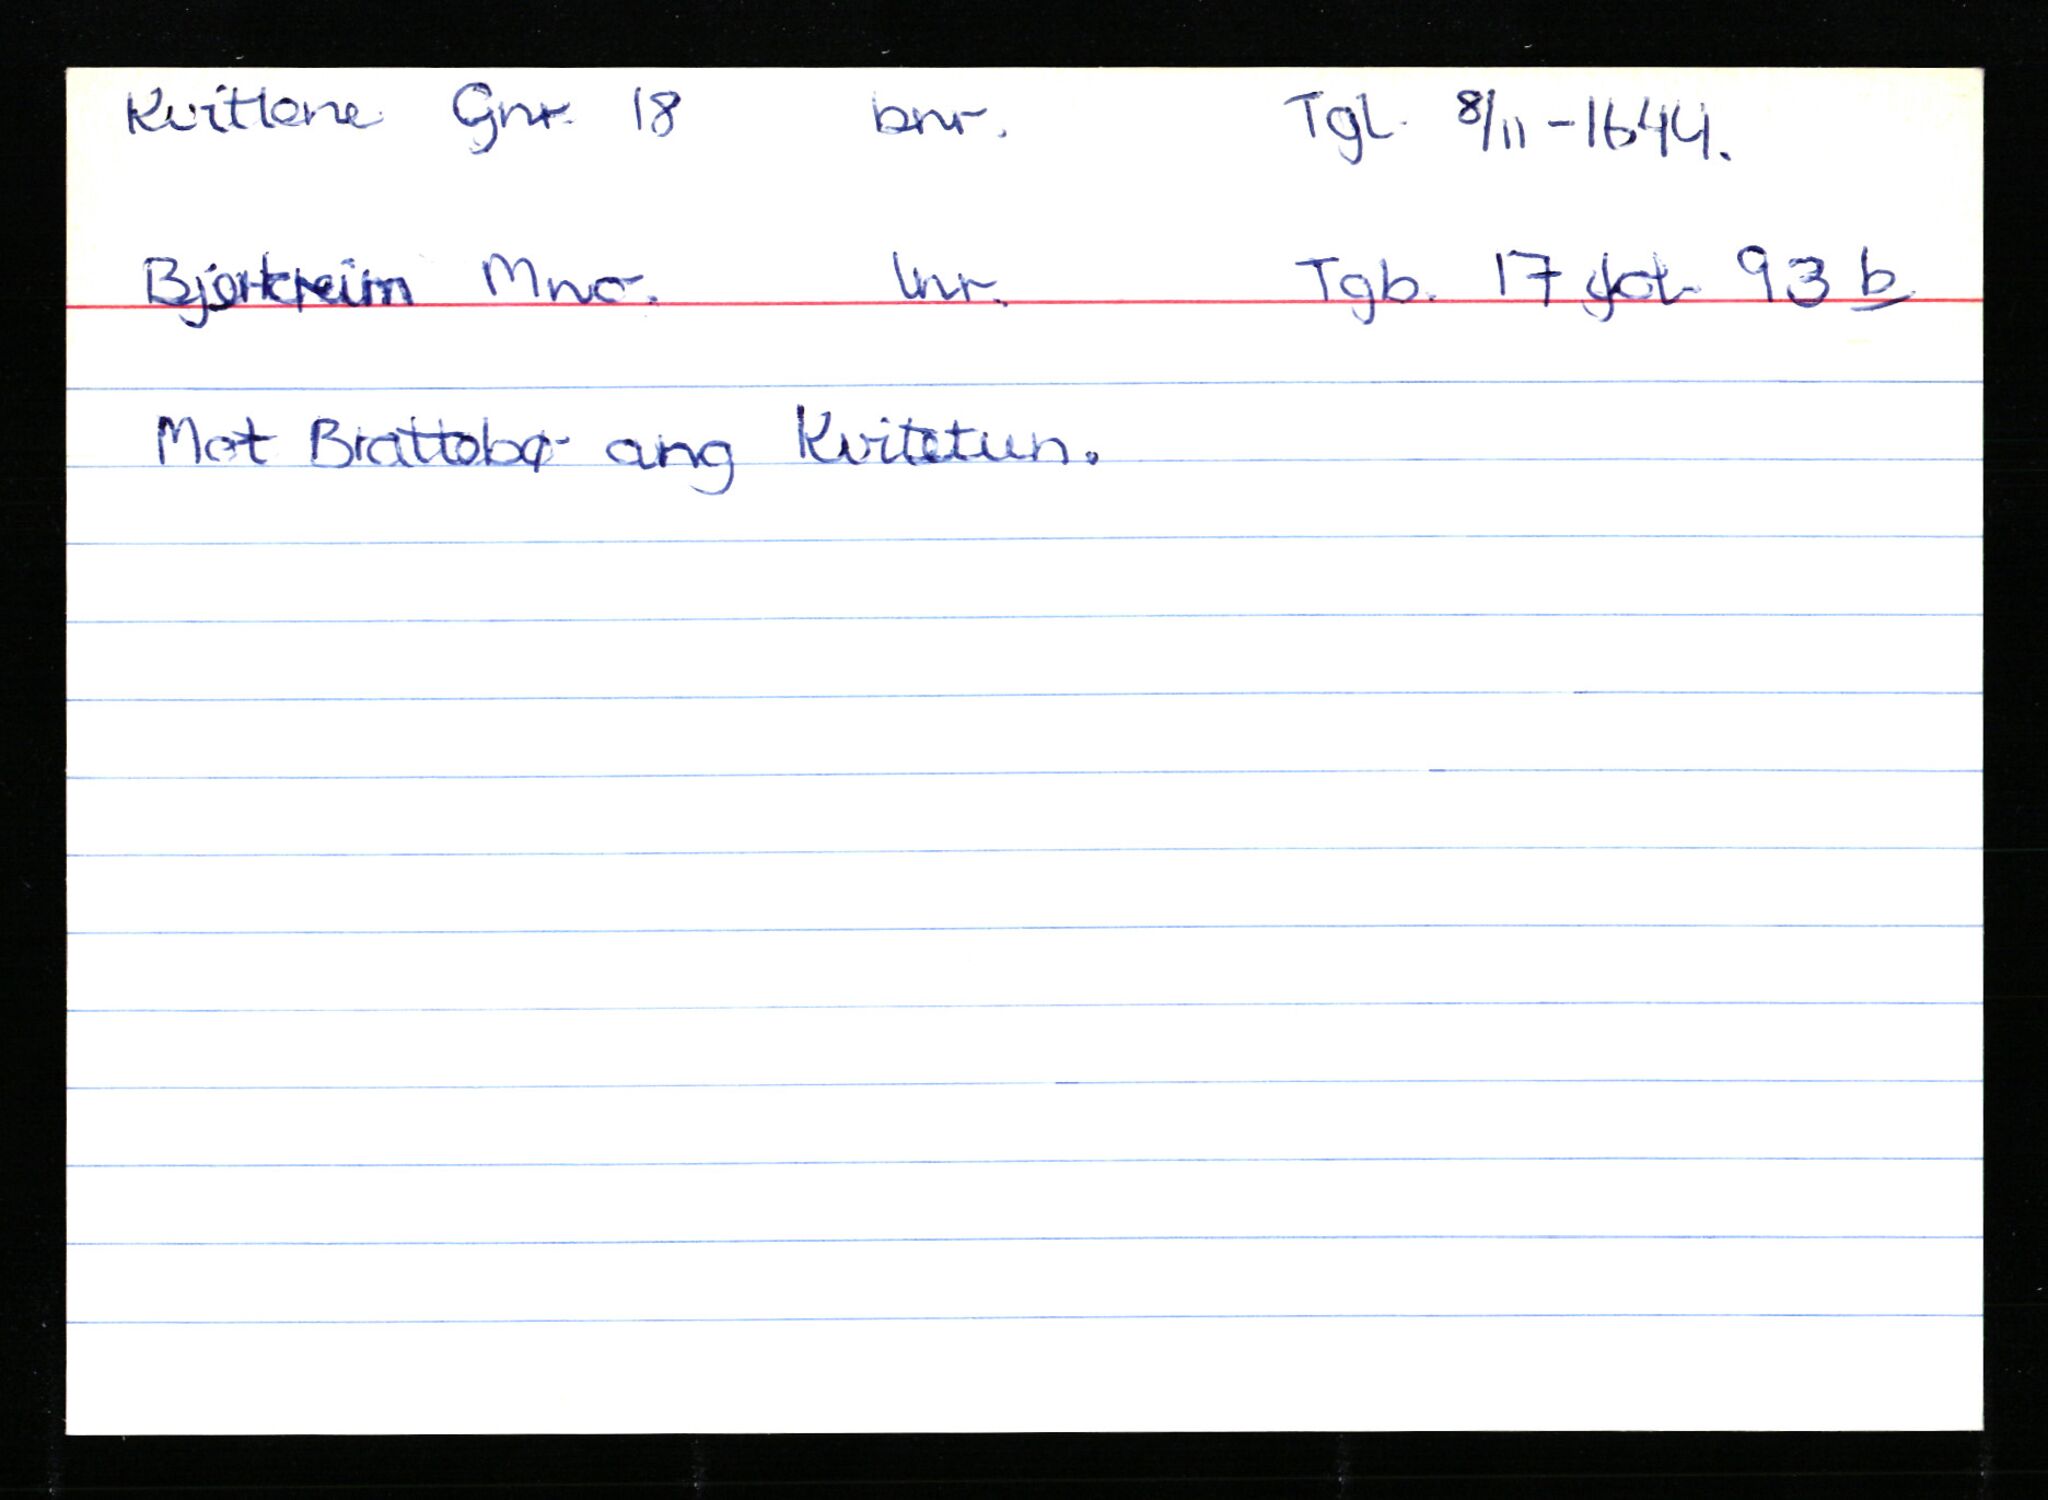 Kvitlane Gnr. 18 bnr. Tgl. 8/11 - 1644.
Bjerkreim Mnr. lnr. Tgb. 17 fol. 93 b
Mot Brattebø ang Kvitetun.